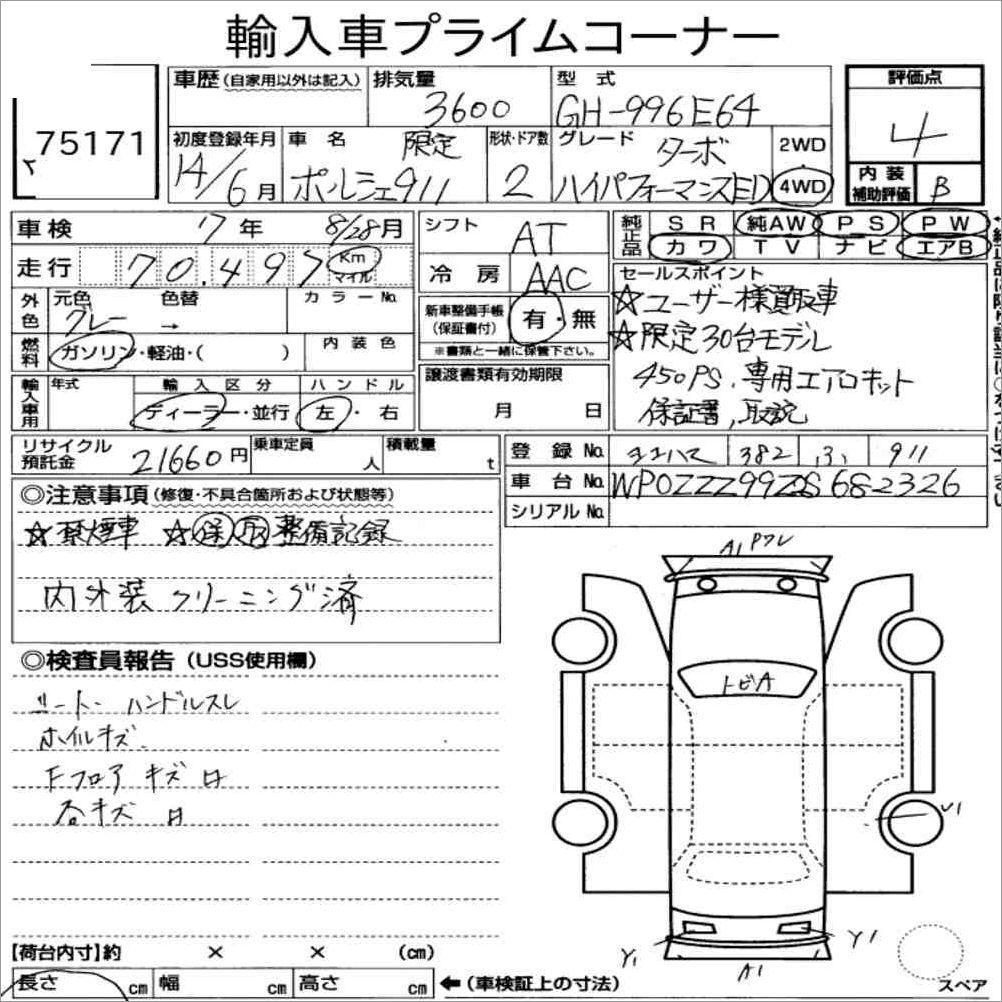 輸入車プライムコーナー
75171
車歴(自家用以外は記入)
排気量
3600
型式
GH-996E64
評価点
4
初度登録年月
14/6月
車名
限定
ポルシェ911
形状・ドア数
2
グレード
ターボ
ハイパフォーマンスED
2WD
4WD
内装
補助評価
B
車検
17年 8/28月
走行
70.497
Km
マイル
外色
元色
色替
カラーNo.
グレー →
燃料
ガソリン・軽油・( )
内装色
輸入車用
年式
輸入区分
ハンドル
ディーラー・並行
左・右
シフト
AT
冷房
AAC
新車整備手帳
(保証書付)
有・無
※書類と一緒に保管下さい。
譲渡書類有効期限
月 日
純正品
SR 純AW PS PW
カワ TV ナビ エアB
セールスポイント
☆ユーザー様買取車
☆限定30台モデル
450PS、専用エアロキット
保証書、取説
リサイクル
預託金
21660円
乗車定員
人
積載量
t
登録No.
ヨコハマ 382 911
車台No.
WP0ZZZ99Z2S682326
シリアルNo.
◎注意事項(修復・不具合箇所および状態等)
☆禁煙車 ☆保 取 整備記録
内外装クリーニング済
◎検査員報告(USS使用欄)
シート・ハンドルスレ
ホイルキズ
Fフロアキズ
各キズ
A1
トビA
Y1
A1
Y1
スペア
【荷台内寸】約 × × (cm)
長さ cm 幅 cm 高さ cm ←(車検証上の寸法)